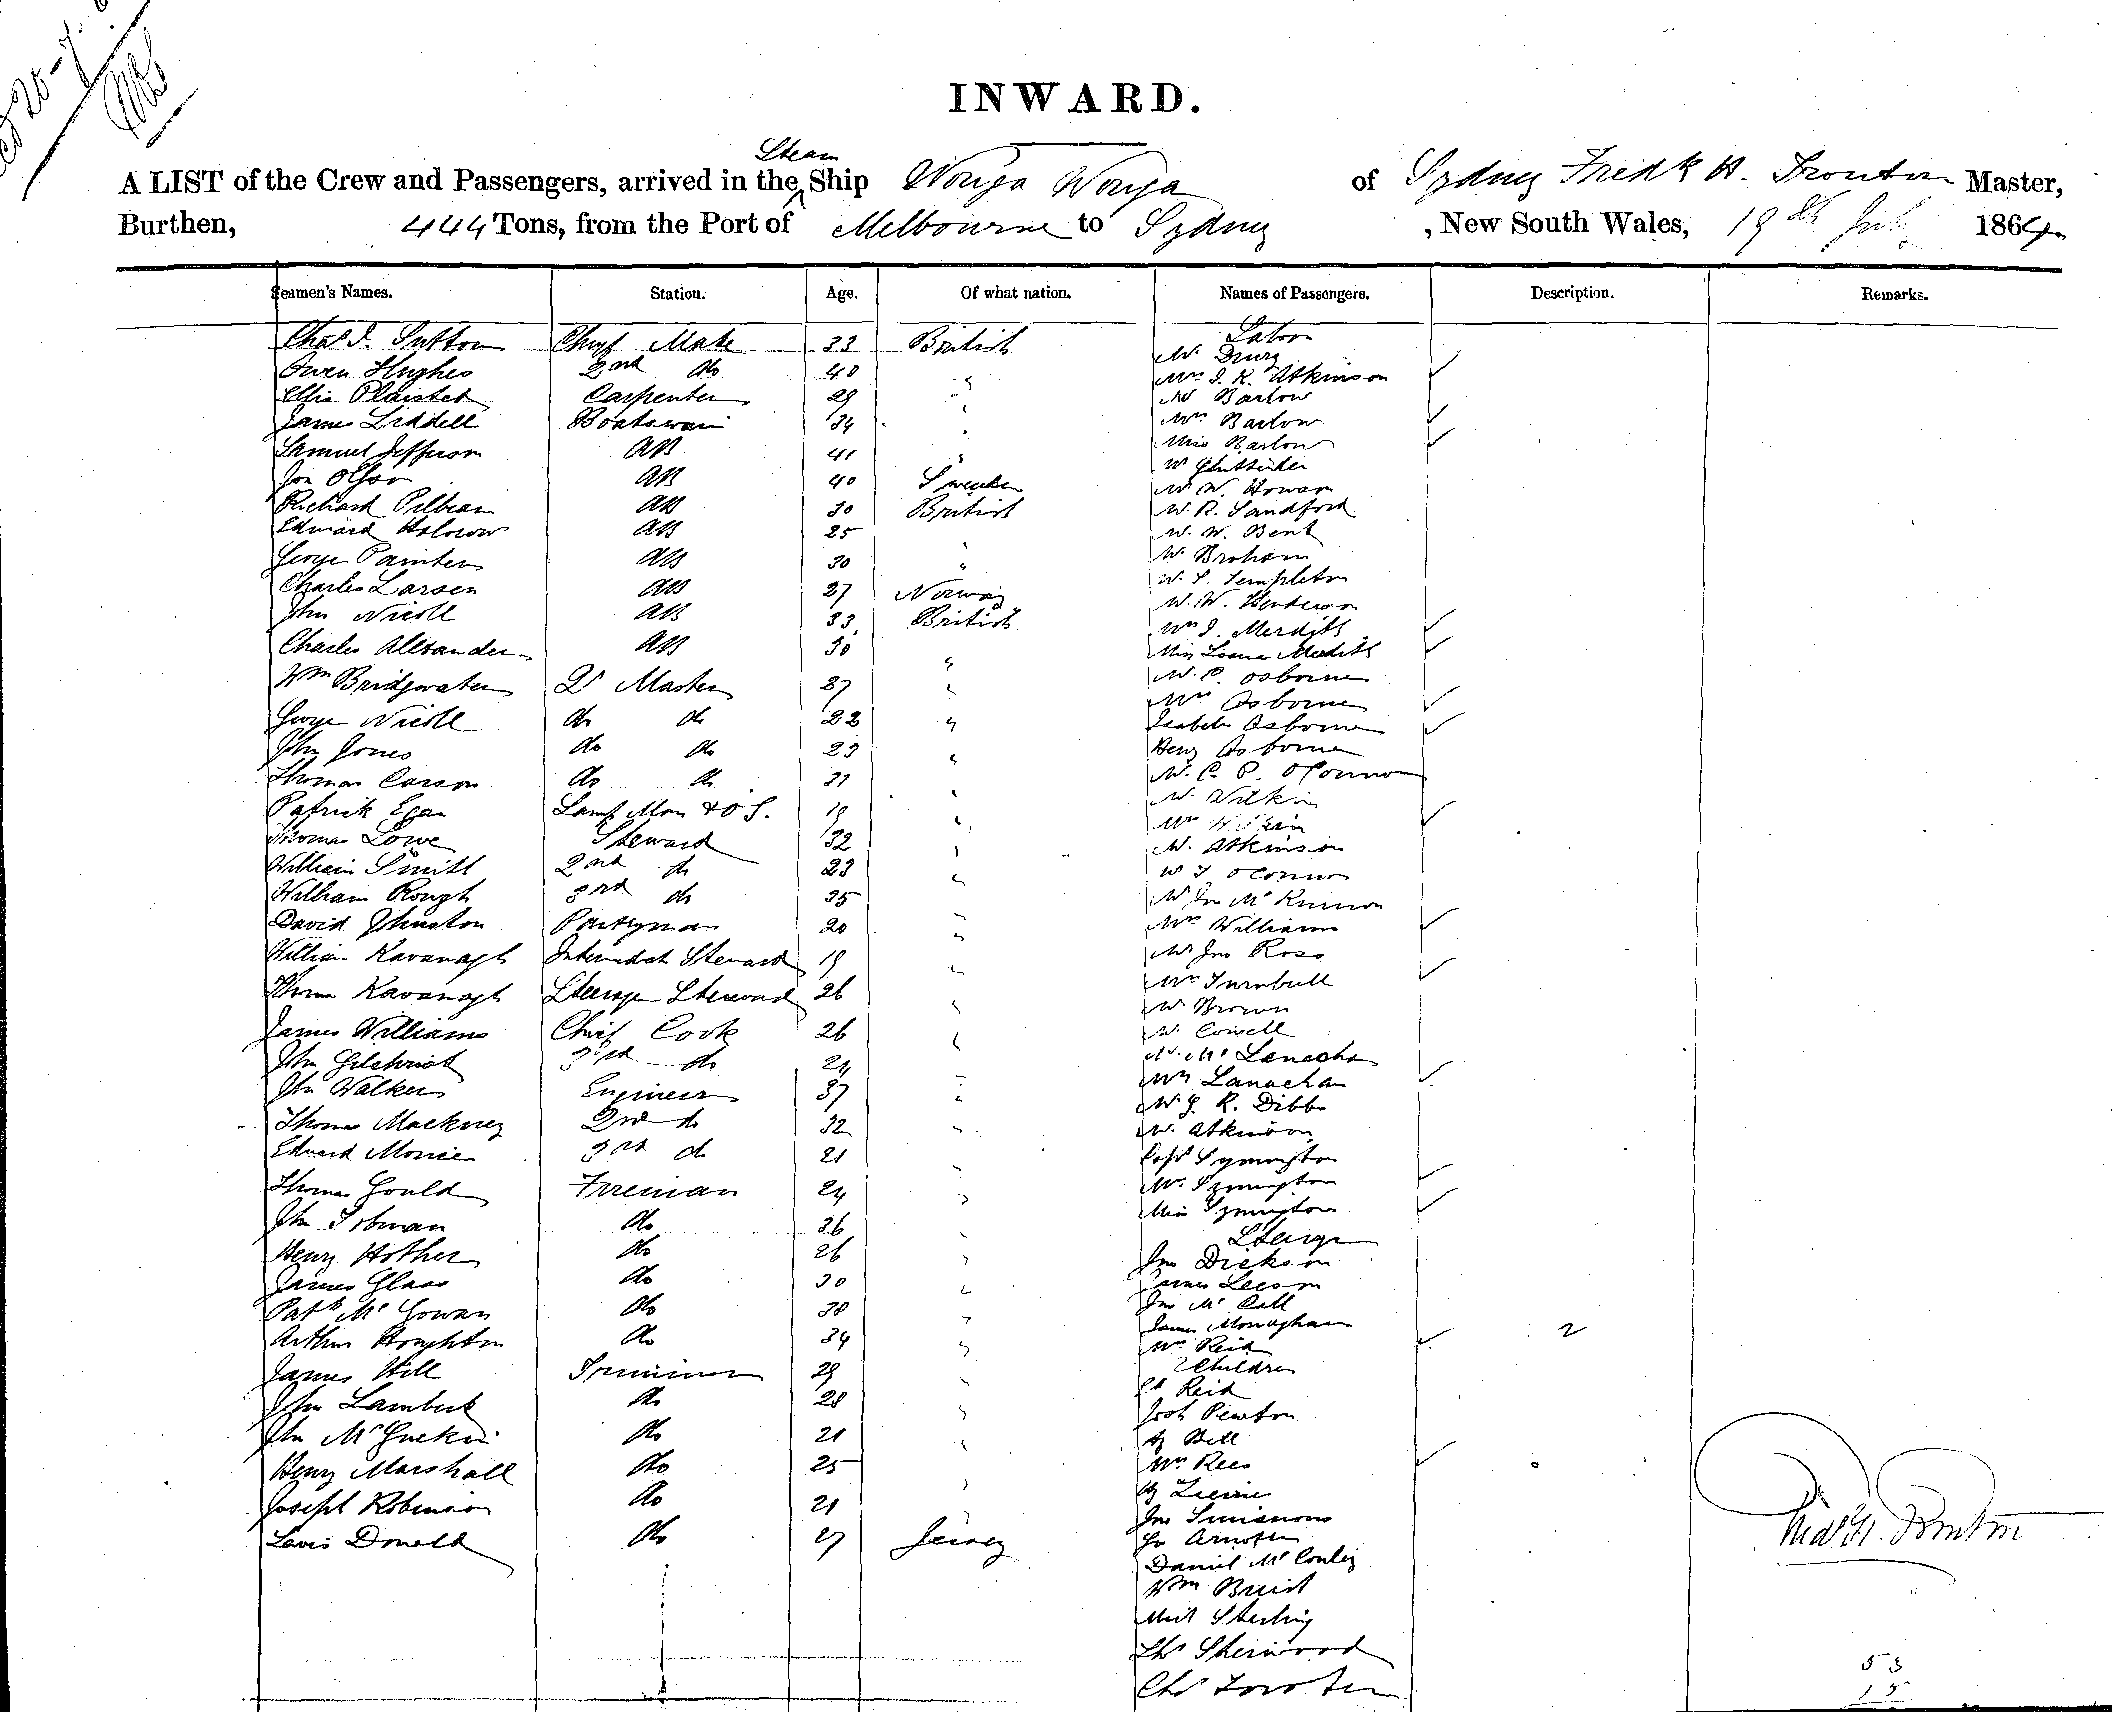 INWARD.
A LIST of the Crew and Passengers, arrived in the Steam Ship Wonga Wonga of Sydney Fredk H. Trouton Master,
Burthen, 444 Tons, from the Port of Melbourne to Sydney , New South Wales, 19th July 1864
Seamen's Names. Station. Age. Of what nation. Names of Passengers. Description. Remarks.
Chas I. Sutton Chief Mate 33 British
Owen Hughes 2nd do 40 "
Ellis Plaisted Carpenter 29 "
James Liddell Boatswain 34 "
Samuel Jefferson AB 41 "
AB 40 Sweden
Richard AB 30 British
Edward AB 25 "
George Painter AB 30 "
Charles Larsen AB 27 Norway
John Nicoll AB 33 British
Charles Allexander AB 30 "
Wm Bridgwater Qr Master 37 "
George Nicoll do do 22 "
John Jones do do 23 "
Thomas Carson do do 31 "
Patrick Egan Lamp Man & O.S. 19 "
Thomas Lowe Steward 32 "
William Smith 2nd do 23 "
William Rough 3rd do 35 "
David Johnston Pantryman 20 "
William Kavanagh Intermediate Steward 19 "
Thomas Kavanagh Steerage Steward 26 "
James Williams Chief Cook 26 "
John Gilchrist do 24 "
John Walker Engineer 37 "
Thomas Mackney 2nd do 32 "
Edward 3rd do 21 "
Thomas Gould Fireman 24 "
John do 26 "
Henry Hother do 26 "
James Glass do 30 "
Patk McGowan do 38 "
Arthur Houghton do 34 "
James Hill Trimmer 29 "
John Lambert do 28 "
John McGuckin do 21 "
Henry Marshall do 25 "
Joseph Robinson do 21
Donald do 27 Jersey
Saloon
Mr Drury
Mrs J. R. Atkinson
Mr Barlow
Mrs Barlow
Miss Barlow
Mr
Mr W. Howard
Mr R. Sandford
Mr W. Bent
Mr
Mr S. Templeton
Mr W. Henderson
Mrs J. Merdith
Miss Merdith
Mr P. Osborne
Mrs Osborne
Isabela Osborne
Henry Osborne
Mr C. P. O'Connor
Mr Wilkin
Mrs Wilkin
Mr Atkinson
Mr T O'Connor
Mr Jno McKinnon
Mrs Williams
Mr Jno Ross
Mrs Turnbull
Mr Brown
Mr Cowell
Mr
Mrs Lanachan
Mr G. R. Dibbs
Mr Atkinson
Capt Symington
Mrs Symington
Miss Symington
Steerage
Jno Dickson
James Leeson
Jno McCall
James Monaghan
Mrs Reid 2
2 Children
Reid
Josh
Bell
Mrs Rees
Jno Simmons
Daniel McConley
Wm
Miss Sterling
Sherwood
Chs
Fredk H. Trouton
53
15